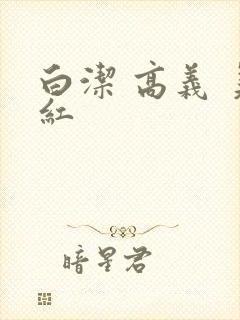 白潔 高義
紅
暗星君